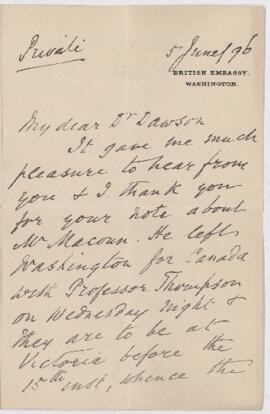 Private
5 June/96
BRITISH EMBASSY,
WASHINGTON.
My dear Dr Dawson
It gave me much
pleasure to hear from
you & I thank you
for your note about
Mr Macoun. He left
Washington for Canada
with Professor Thompson
on Wednesday night &
they are to be at
Victoria before the
15th inst, whence the